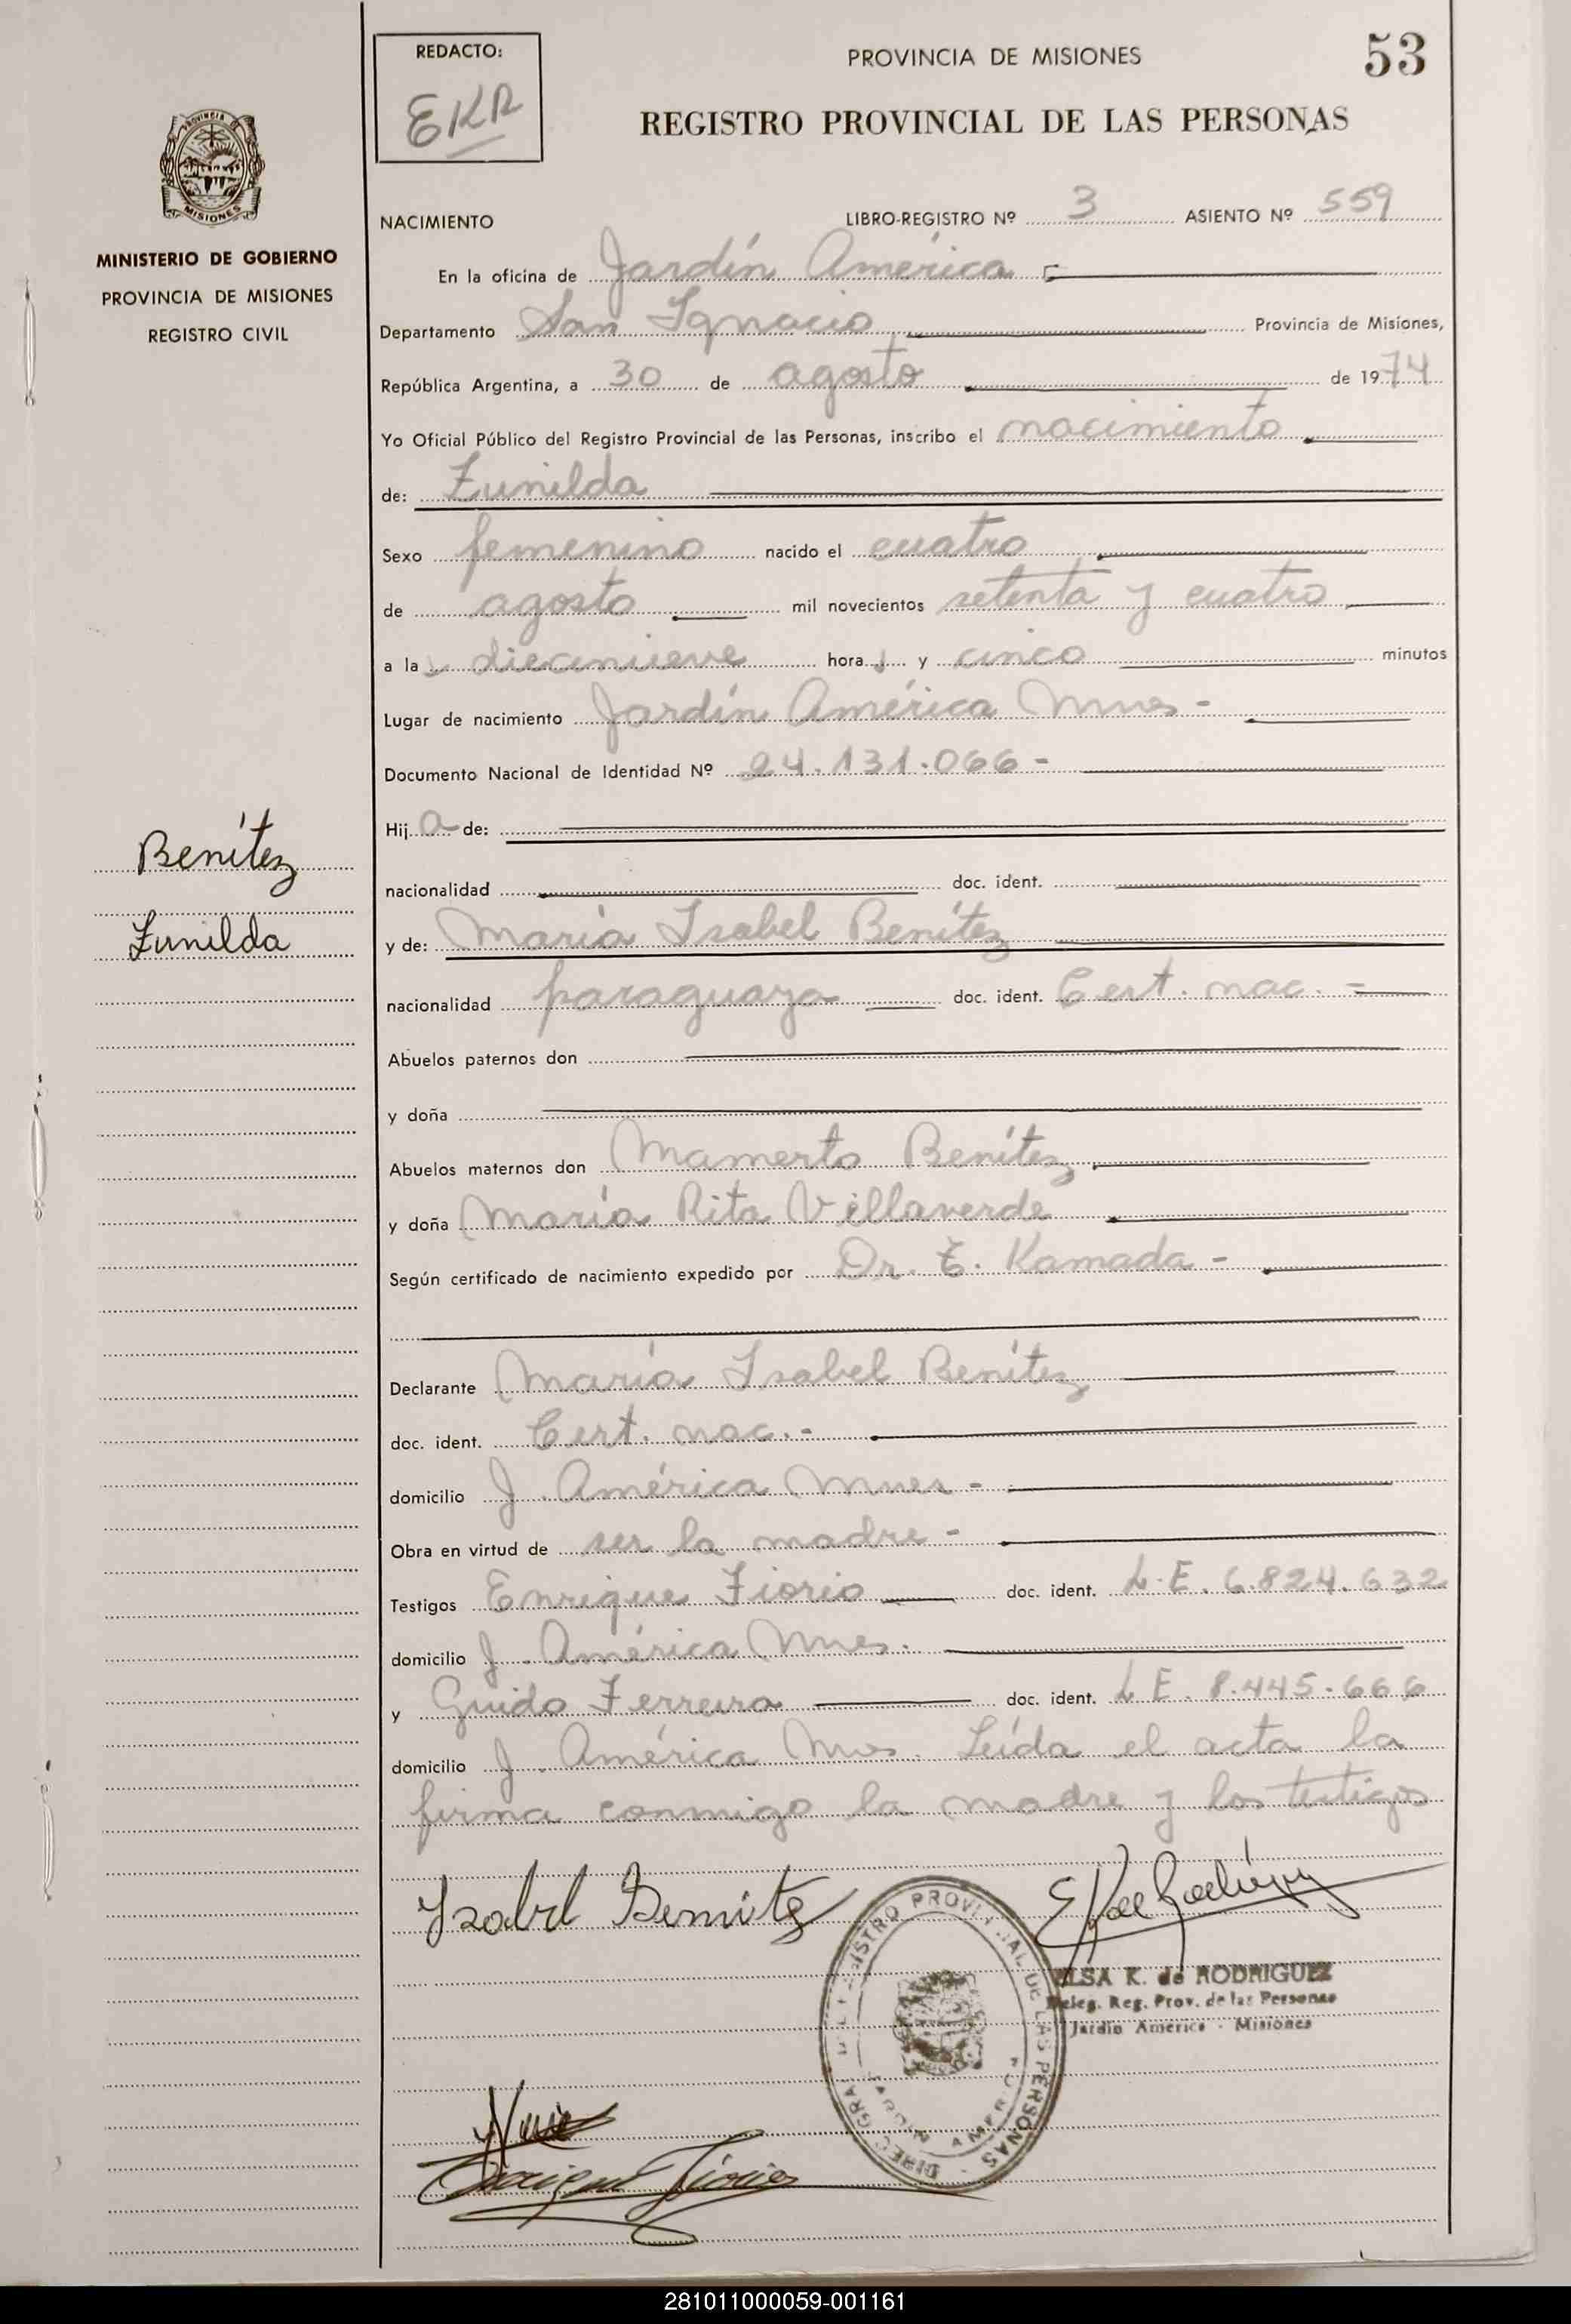 REDACTO:
EKR
PROVINCIA DE MISIONES
53
REGISTRO PROVINCIAL DE LAS PERSONAS
PROVINCIA DE
MISIONES
MINISTERIO DE GOBIERNO
PROVINCIA DE MISIONES
REGISTRO CIVIL
NACIMIENTO LIBRO-REGISTRO Nº 3 ASIENTO Nº 559
En la oficina de Jardín América
Departamento San Ignacio Provincia de Misiones,
República Argentina, a 30 de agosto de 1974
Yo Oficial Público del Registro Provincial de las Personas, inscribo el nacimiento
de: Zunilda
Sexo femenino nacido el cuatro
de agosto mil novecientos setenta y cuatro
a la s diecinueve hora s y cinco minutos
Lugar de nacimiento Jardín América Mnes -
Documento Nacional de Identidad Nº 24.131.066 -
Hij a de:
nacionalidad doc. ident.
Benítez
Zunilda
y de: María Isabel Benítez
nacionalidad paraguaya doc. ident. Cert. nac. -
Abuelos paternos don
y doña
Abuelos maternos don Mamerto Benítez
y doña María Rita Villaverde
Según certificado de nacimiento expedido por Dr. E. Kamada -
Declarante María Isabel Benítez
doc. ident. Cert. nac. -
domicilio J. América Mnes -
Obra en virtud de ser la madre -
Testigos Enrique Fiorio doc. ident. L.E. 6.824.632
domicilio J. América Mnes.
y Guido Ferreira doc. ident. L E. 8.445.666
domicilio J. América Mnes. Leída el acta la
firma conmigo la madre y los testigos
Isabel Benitez
ELSA K. de RODRIGUEZ
Deleg. Reg. Prov. de las Personas
Jardín América - Misiones
REGISTRO PROVINCIAL DE LAS PERSONAS
JARDIN AMERICA
Enrique Fiorio
281011000059-001161